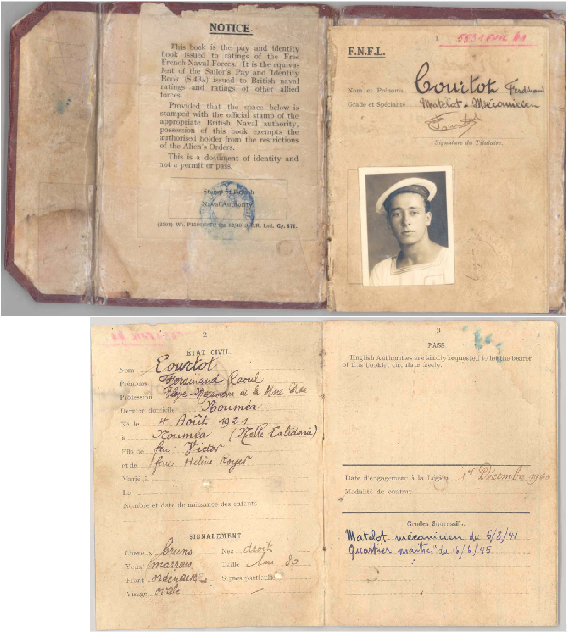 NOTICE.
This book is the pay and identity
book issued to ratings of the Free
French Naval Forces. It is the equiva-
lent of the Sailor's Pay and Identity
Book issued to British naval
ratings and ratings of other allied
forces.
Provided that the space below is
stamped with the official stamp of the
appropriate British Naval authority,
possession of this book exempts the
authorised holder from the restrictions
of the Alien's Orders.
This is a document of identity and
not a permit or pass.
Stamp of British
Naval Authority
1
F.N.F.L.
Nom et Prénoms Courtot Ferdinand
Grade et Spécialité Matelot Mécanicien
Signature du Titulaire.
2
ETAT CIVIL
Nom Courtot
Prénoms Ferdinand Raoul
Profession
Dernier domicile Nouméa
Né le 4 Août 1921
à Nouméa (Nelle Calédonie)
Fils de feu Victor
et de feue Hélène
Marié à
Le
Nombre et date de naissance des enfants
SIGNALEMENT
Cheveux bruns Nez droit
Yeux marrons Taille 1m 80
Front Signes particuliers
Visage ovale
3
PASS
English Authorities are kindly requested to let the bearer
of this booklet pass freely.
Date d'engagement à la Légion 1er Décembre 1940
Modalité de contrat
Grades Successifs.
Matelot mécanicien de 5/3/41
Quartier maître de 16/6/45